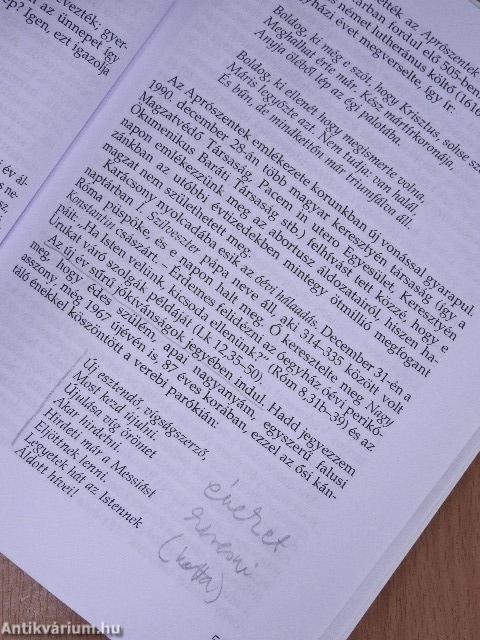 evezték; gyer-
az ünnepet így
ép? Igen, ezt igazolja
ték az Aprószentek
tárban fordul elő 505-ben
yházi évet megverselte, így ír:
német lutheránus költő (1616
Boldog, ki még e szót, hogy Krisztus, sohse szó
Meghalhat érte már, Kész mártírkoronája,
Anyja öléből lép az égi palotába.
Boldog, ki ellenét hogy megismerte volna,
Máris legyőzte azt. Nem tudja: van halál,
És bűn, de mindkettőn már triumfálón áll.
Az Aprószentek emlékezete korunkban új vonással gyarapul.
1990. december 28-án több magyar keresztyén társaság (így a
Magzatvédő Társaság, Pacem in utero Egyesület, Keresztyén
Ökumenikus Baráti Társaság stb.) felhívást tett közzé, hogy e
napon emlékezzünk meg az abortusz áldozatairól, hiszen ha-
zánkban az utóbbi évtizedekben mintegy ötmillió megfogant
magzat nem születhetett meg.
Karácsony nyolcadába esik az óévi hálaadás. December 31-én a
naptárban I. Szilveszter pápa neve áll, aki 314–335 között volt
Róma püspöke, és e napon halt meg. Ő keresztelte meg Nagy
Konstantin császárt. – Érdemes felidézni az óegyház óévi perikó-
páit: „Ha Isten velünk, kicsoda ellenünk?” (Róm 8,31b–39) és az
Urukat váró szolgák példáját (Lk 12,35–50).
Az új év sűrű jókívánságok jegyében indul. Hadd jegyezzem
meg, hogy édes szülém, apai nagyanyám, egyszerű falusi
asszony, még 1967 újévén is, 87 éves korában, ezzel az ősi kán-
táló énekkel köszöntött a verebi parókián:
Új esztendő, vígságszerző,
Most kezd újulni.
Újulása víg örömöt
Akar hirdetni.
Hirdeti már a Messiást
Eljöttnek lenni.
Legyetek hát az Istennek
Áldott hívei!
éneket
keresni
(kotta)
Antikvárium.hu